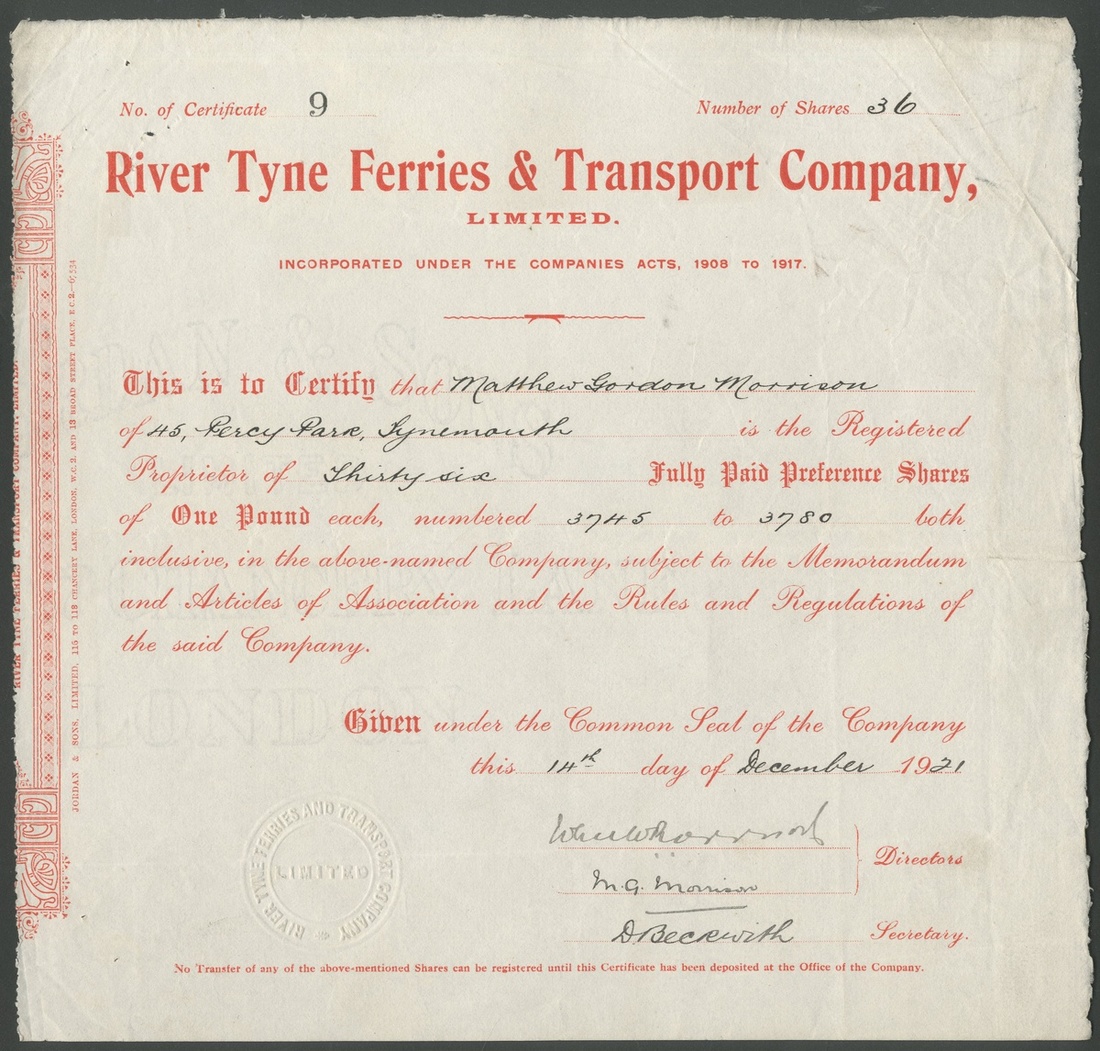 No. of Certificate 9 Number of Shares 36
River Tyne Ferries & Transport Company,
LIMITED.
INCORPORATED UNDER THE COMPANIES ACTS, 1908 TO 1917.
This is to Certify that Matthew Gordon Morrison
of 45, Percy Park, Tynemouth is the Registered
Proprietor of Thirty six Fully Paid Preference Shares
of One Pound each, numbered 3745 to 3780 both
inclusive, in the above-named Company, subject to the Memorandum
and Articles of Association and the Rules and Regulations of
the said Company.
Given under the Common Seal of the Company
this 14th day of December 1921
M. G. Morrison
Directors
D Beckwith Secretary.
No Transfer of any of the above-mentioned Shares can be registered until this Certificate has been deposited at the Office of the Company.
RIVER TYNE FERRIES AND TRANSPORT COMPANY
LIMITED
RIVER TYNE FERRIES & TRANSPORT COMPANY, LIMITED.
JORDAN & SONS, LIMITED, 115 TO 118 CHANCERY LANE, LONDON, W.C. 2, AND 13 BROAD STREET PLACE, E.C. 2.
LONDON